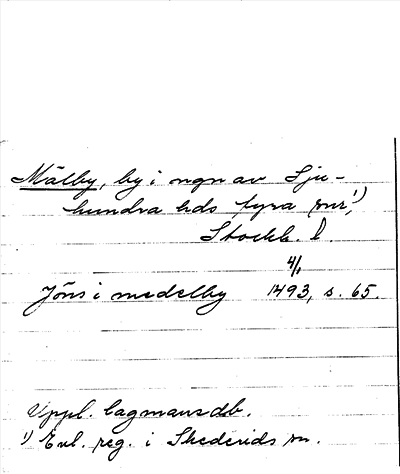 Mälby, by i ngn av Sju-
hundra hds fyra snr¹),
Stockh. l.
4/1
Jöns i medelby 1493, s. 65.
Uppl. lagmansdb.
¹) Enl. reg. i Skederids sn.